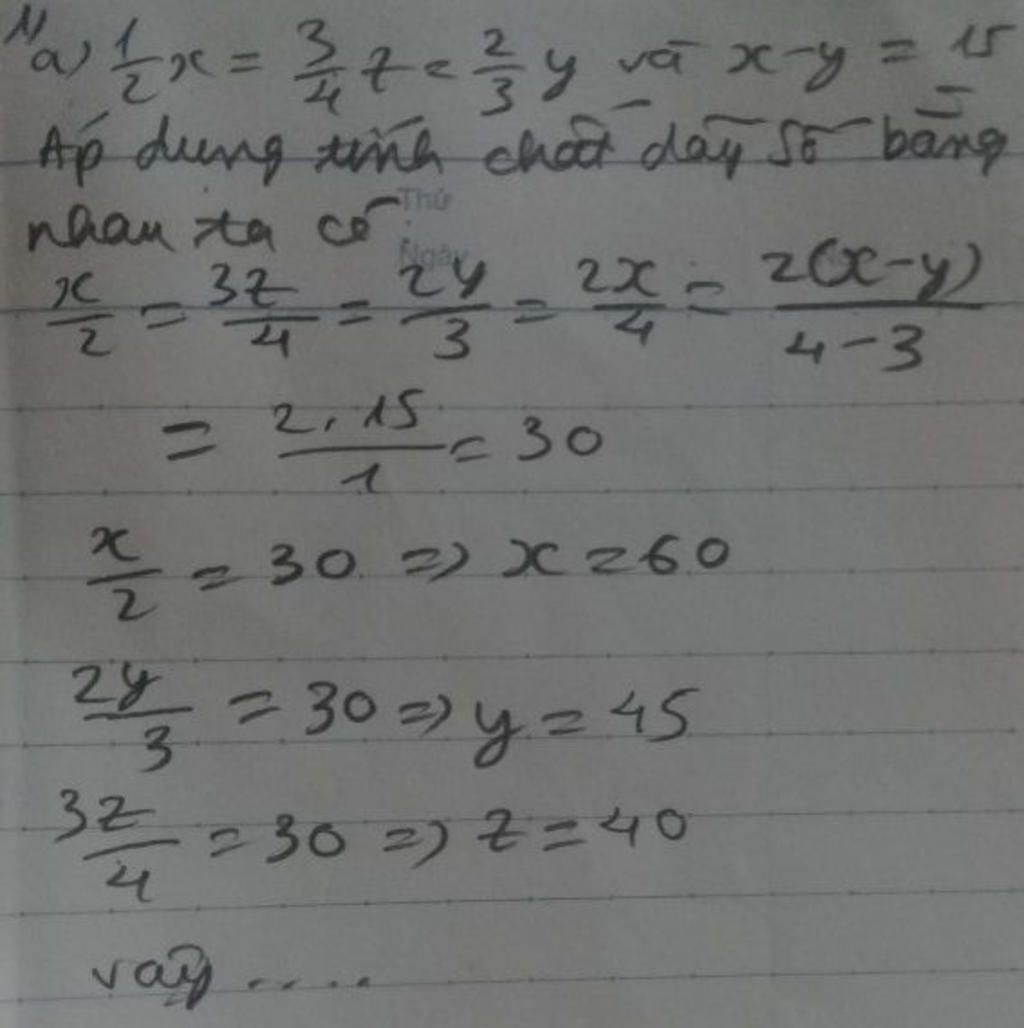 1) a) 1/2 x = 3/4 z = 2/3 y và x-y = 15
Áp dụng tính chất dãy số bằng
Thứ
nhau ta có
Ngày
x/2 = 3z/4 = 2y/3 = 2x/4 = 2(x-y)/4-3
= 2.15/1 = 30
x/2 = 30 => x = 60
2y/3 = 30 => y = 45
3z/4 = 30 => z = 40
vậy ....